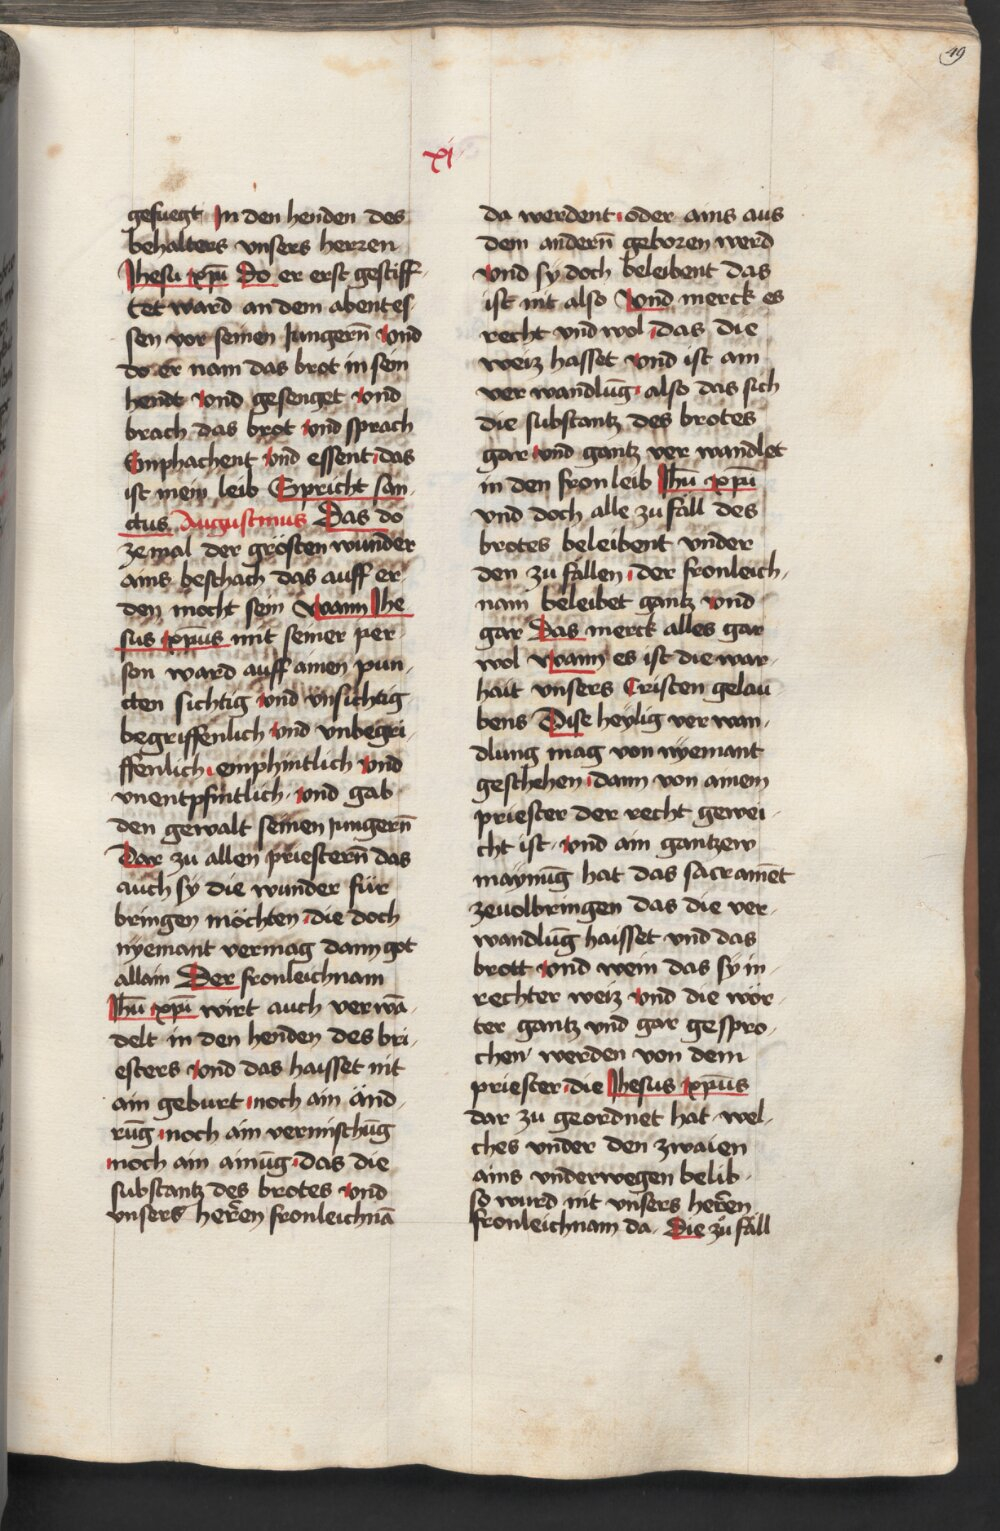 49
xi
gefuegt In den henden des
behalters vnsers herren
Jhesu xpū Do er erst gestiff
tet ward an dem abentes
sen vor seinen Jungern̄ Vnd
do er nam das brot in sein
hendt Vnd gesenget Vnd
brach das brot Vnd sprach
Emphachent Vnd essent das
ist mein leib Spricht san
ctus Augustinus Das do
ze mal der grösten wunder
ains beschach das auff er
den mocht sein Wann Jhe
sus xpūs mit seiner per
son ward auff ainen pun
cten sichtig Vnd vnsichtig
begriffenlich Vnd vnbegri
ffenlich emphintlich Vnd
vnentpfintlich Vnd gab
den gewalt seinen Jungern̄
Dar zu allen priestern̄ das
auch sy die wunder für
bringen möchten die doch
nyemant vermag dann got
allain Der fronleichnam
Jhū xpī wirt auch verwā
delt in den henden des bri
esters Vnd das haisset nit
ain geburt noch ain Änd
rūg noch ain vermischūg
noch ain ainūg das die
substantz des brotes Vnd
vnsers herren fronleichnā
da werdent oder ains aus
dem andern̄ geboren werd
Vnd sy doch beleibent das
ist nit also Vnd merck es
recht vnd wol das die
weiz hasset Vnd ist ain
ver wandlūg also das sich
die substantz des brotes
gar Vnd gantz ver wandlet
in den fron leib Jhū xpū
vnd doch alle zu fäll des
brotes beleibent vnder
den zu fällen der fronleich
nam beleibet gantz Vnd
gar Das merck alles gar
wol Wann es ist die war
hait vnsers Cristen gelau
bens Dise heylig ver wan
dlung mag von nyemant
geschehen dann von ainem
priester der recht gewei
cht ist Vnd ain gantzew
maynūg hat das sacramēt
zeuolbringen das die ver
wandlūg haisset vnd das
brott Vnd wein das sy in
rechter weiz Vnd die wör
ter gantz vnd gar gespro
chen werden von dem
priester die Jhesus xpūs
dar zu geordnet hat wel
ches vnder den zwaien
ains vnderwegen belib
so wurd nit vnsers heren
fronleichnam da Die zu fäll